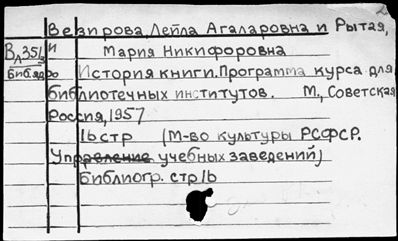 Везирова, Лейла Агаларовна и Рытая,
Мария Никифоровна
История книги. Программа курса для
библиотечных институтов. М., Советская
Россия, 1957
16 стр (М-во культуры РСФСР.
Управление учебных заведений)
Библиогр. стр 16